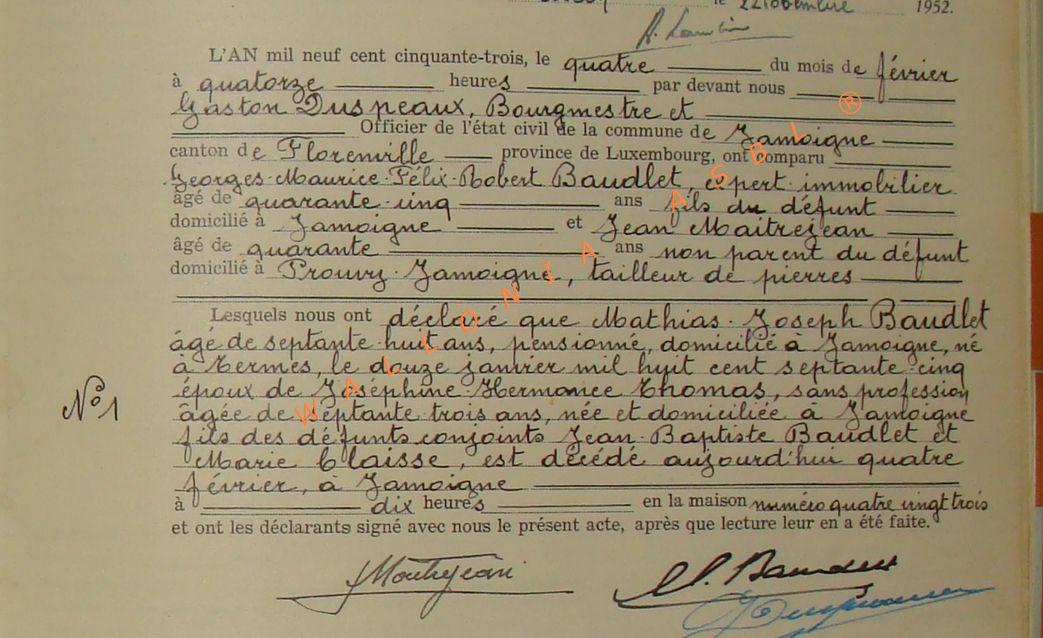 le 22 1952.
L'AN mil neuf cent cinquante-trois, le quatre du mois de février
à quatorze heures par devant nous
Gaston Duspeaux, Bourgmestre et
Officier de l'état civil de la commune de Jamoigne
canton de Florenville province de Luxembourg, ont comparu
Georges-Maurice-Félix-Robert Baudlet, expert-immobilier
âgé de quarante-cinq ans fils du défunt
domicilié à Jamoigne et Jean Maitrejean
âgé de quarante ans non parent du défunt
domicilié à Prouvy-Jamoigne, tailleur de pierres
Lesquels nous ont déclaré que Mathias-Joseph Baudlet
âgé de septante-huit ans, pensionné, domicilié à Jamoigne, né
à Termes, le douze janvier mil huit cent septante-cinq
époux de Joséphine-Hermance Thomas, sans profession
N° 1
âgée de septante-trois ans, née et domiciliée à Jamoigne
fils des défunts conjoints Jean-Baptiste Baudlet et
Marie Claisse, est décédé aujourd'hui quatre
février, à Jamoigne
à dix heures en la maison numéro quatre vingt trois
et ont les déclarants signé avec nous le présent acte, après que lecture leur en a été faite.
WALLONIA ASBL ®